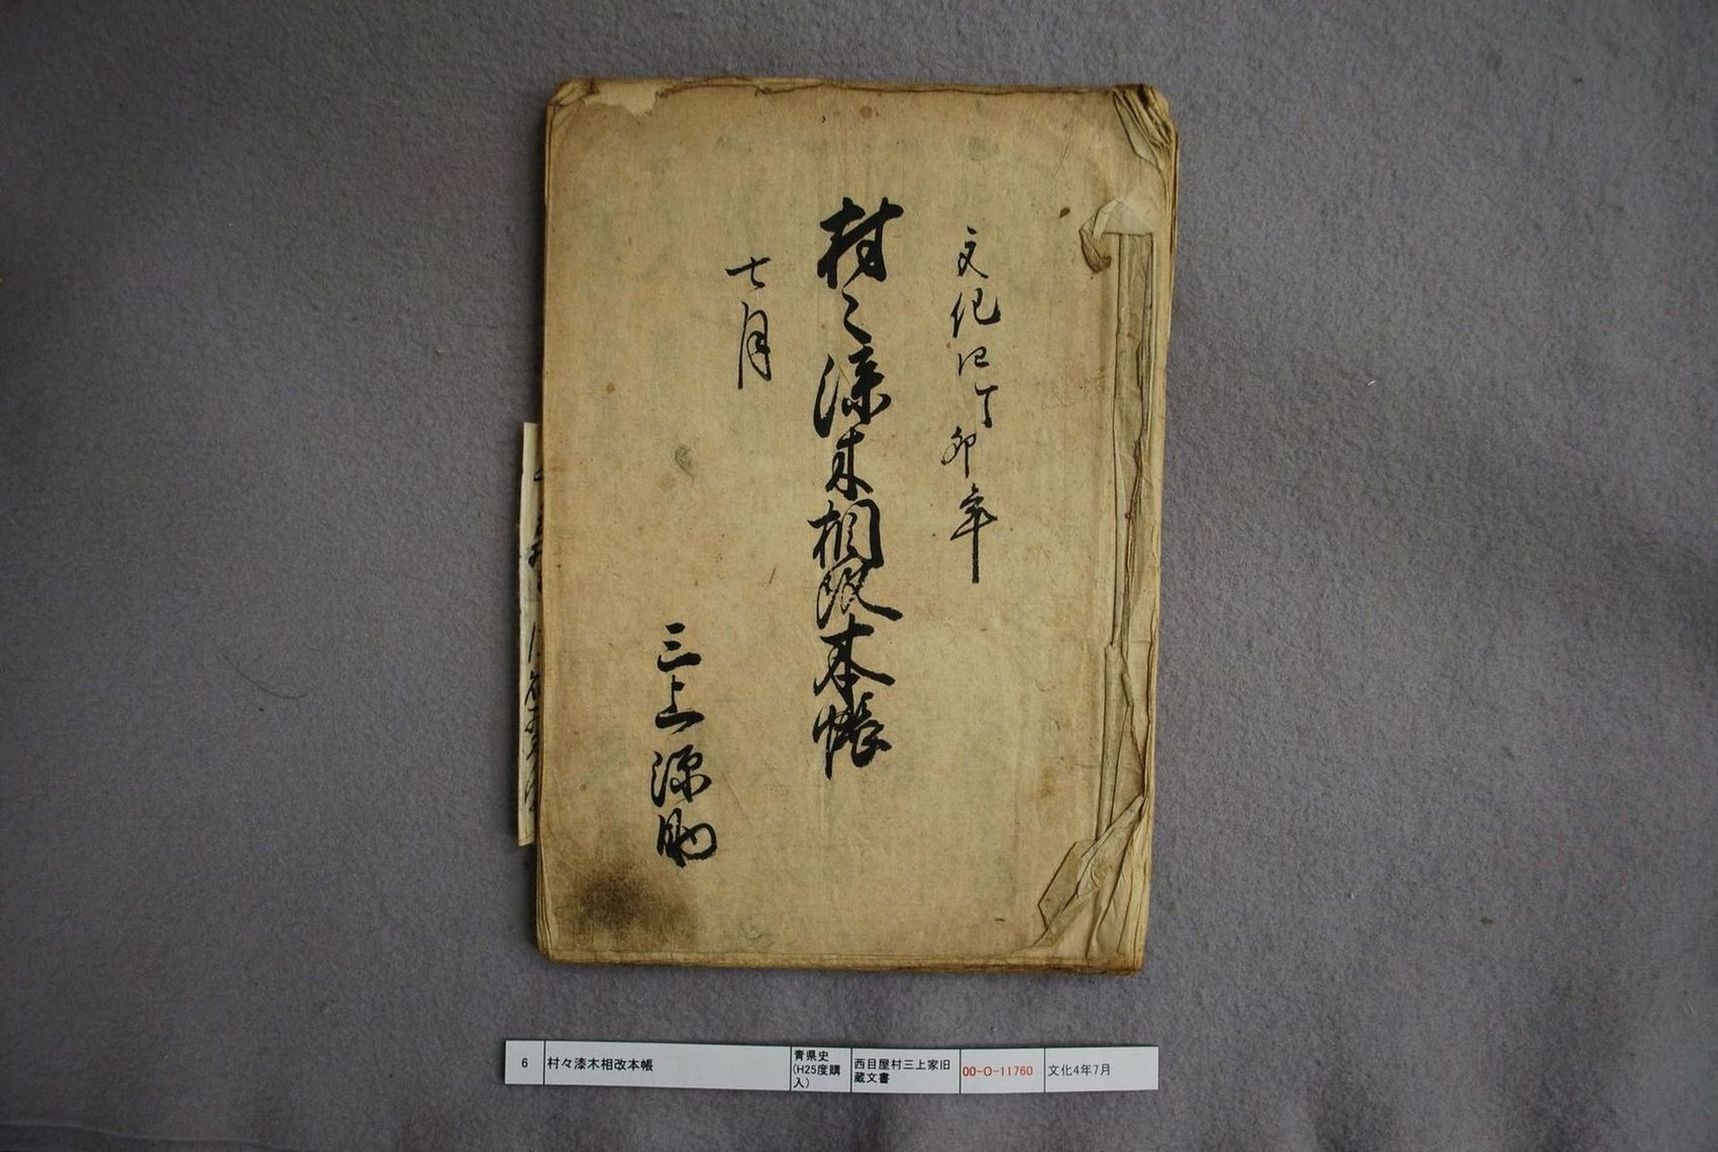 文化四丁卯年
村々漆木相改本帳
七月
三上源助
6 村々漆木相改本帳 青県史(H25度購入) 西目屋村三上家旧蔵文書 00-O-11760 文化4年7月